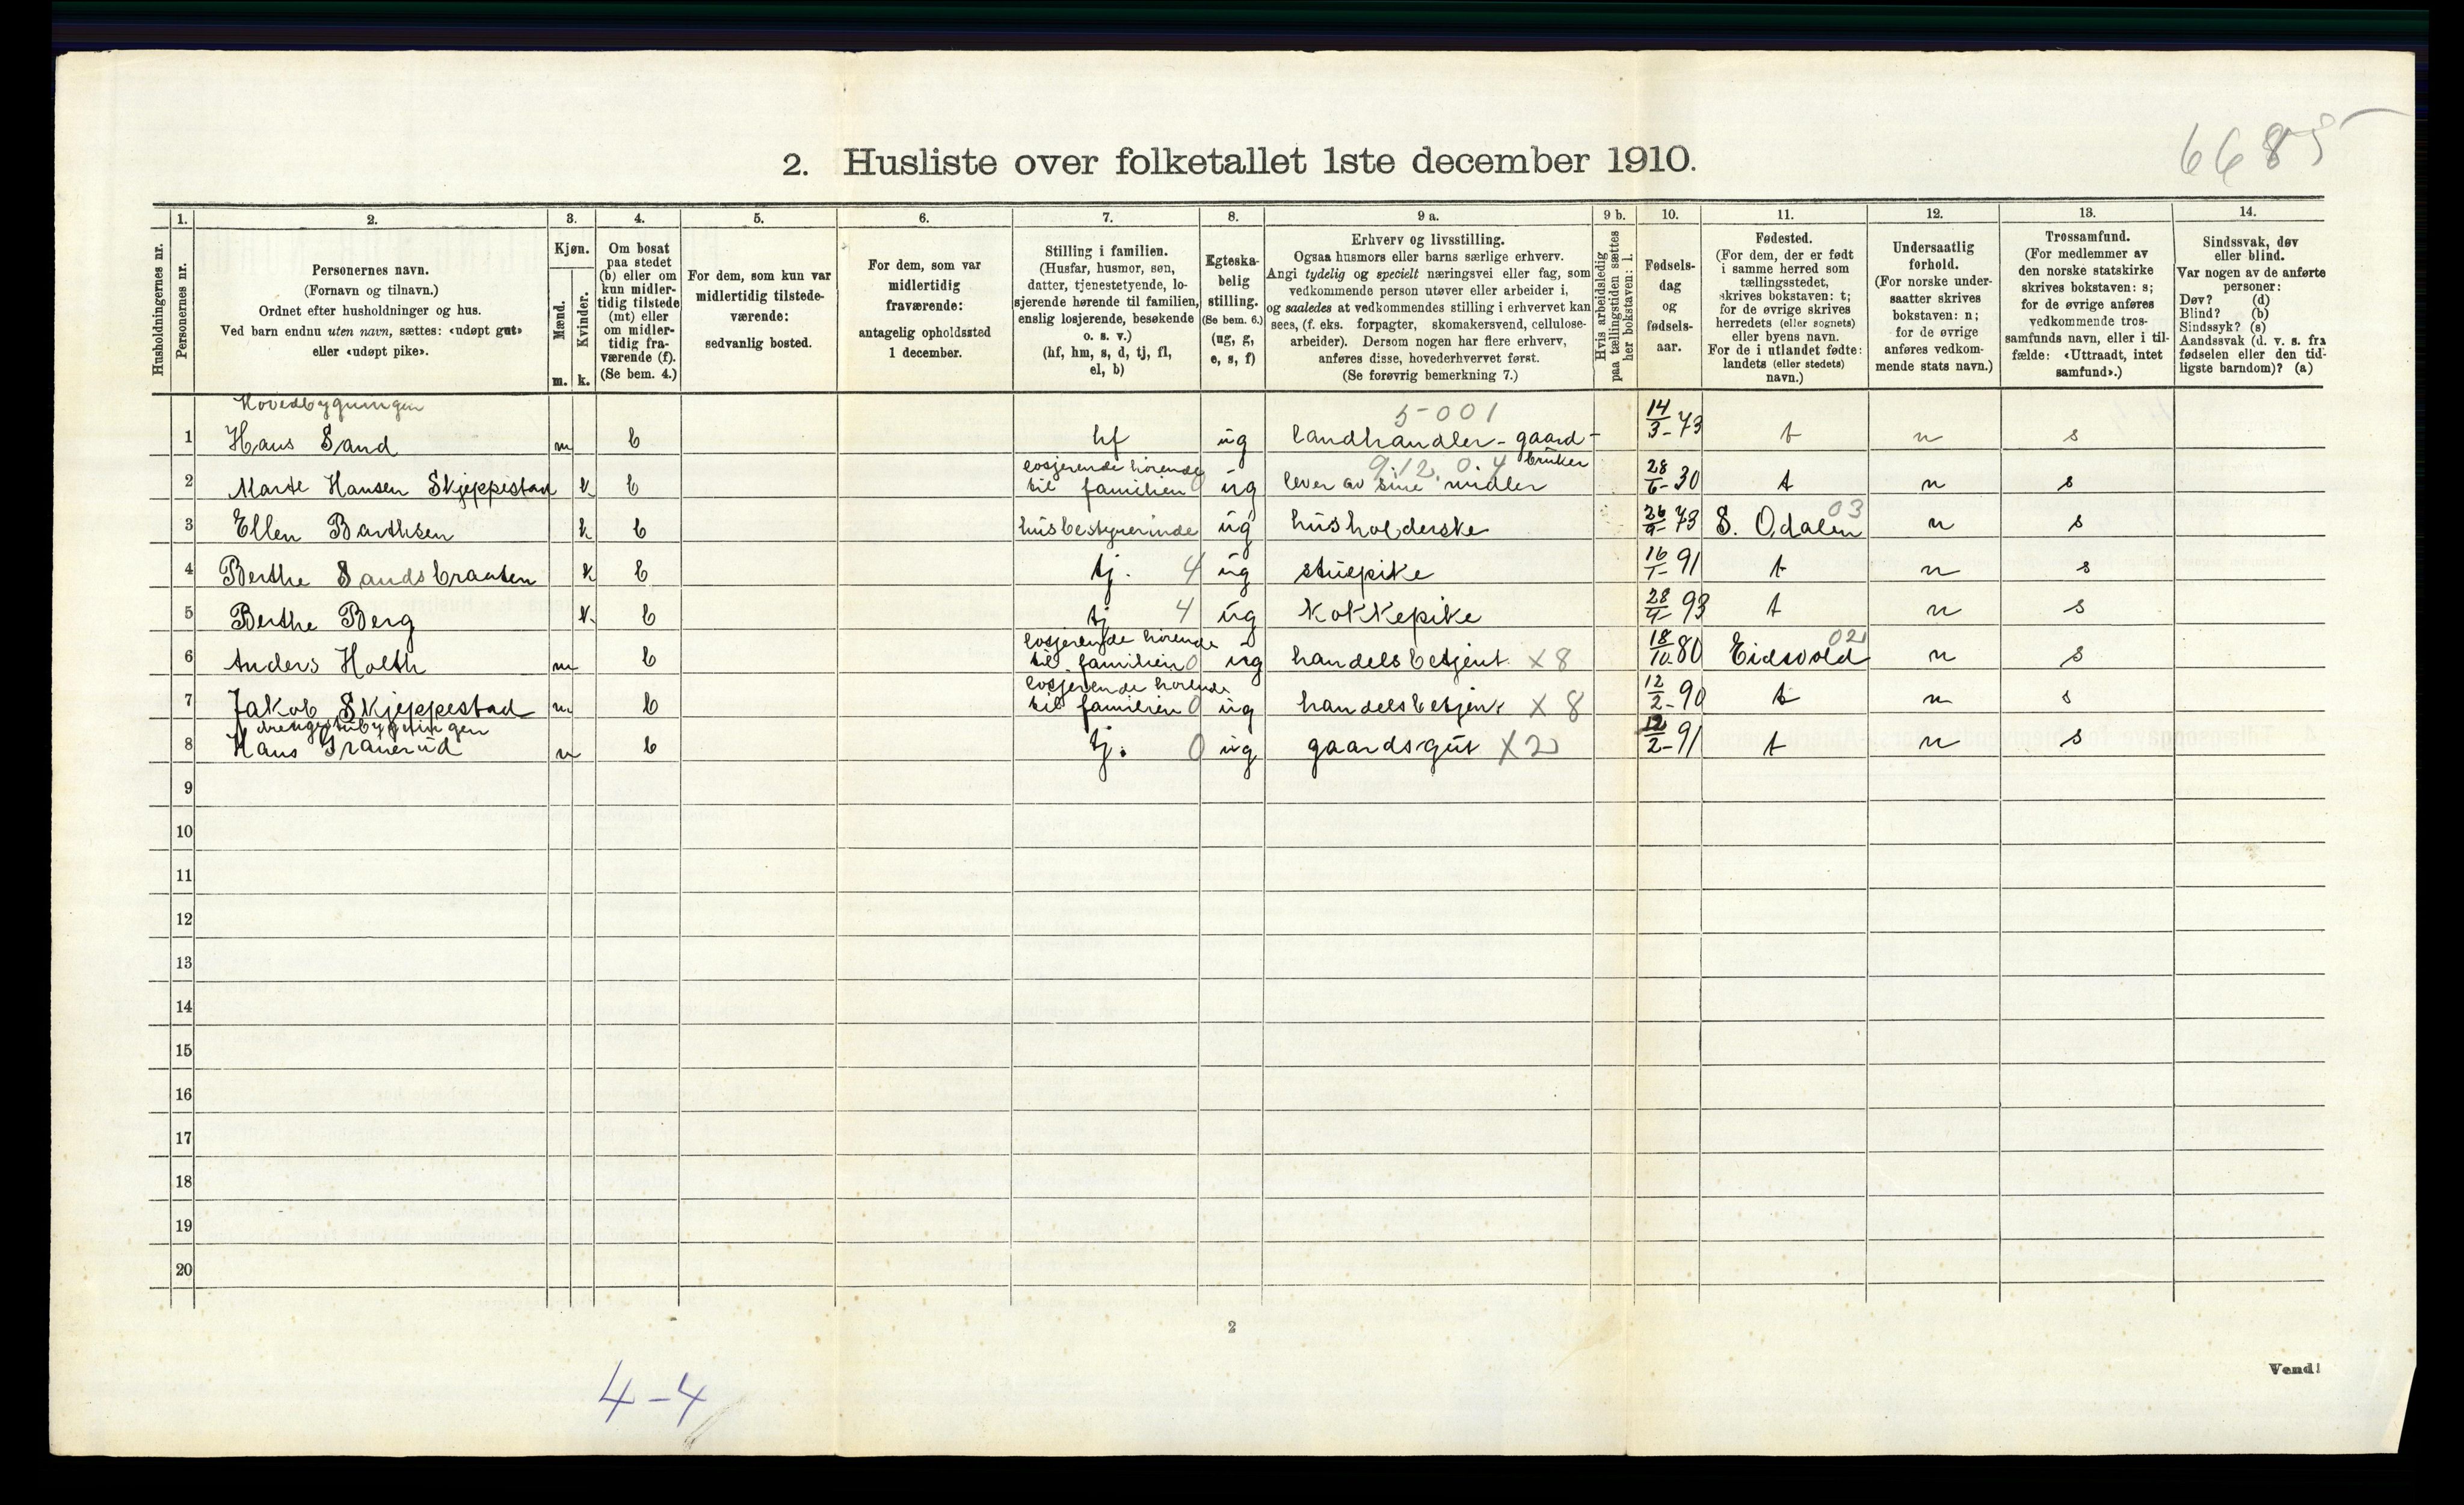 6685
2. Husliste over folketallet 1ste december 1910.
Husholdningernes nr.
1. Personernes nr.
2. Personernes navn. (Fornavn og tilnavn.) Ordnet efter husholdninger og hus. Ved barn endnu uten navn, sættes: «udøpt gut» eller «udøpt pike».
3. Kjøn. Mænd. m. Kvinder. k.
4. Om bosat paa stedet (b) eller om kun midlertidig tilstede (mt) eller om midlertidig fraværende (f). (Se bem. 4.)
5. For dem, som kun var midlertidig tilstedeværende: sedvanlig bosted.
6. For dem, som var midlertidig fraværende: antagelig opholdssted 1 december.
7. Stilling i familien. (Husfar, husmor, søn, datter, tjenestetyende, losjerende hørende til familien, enslig losjerende, besøkende o. s. v.) (hf, hm, s, d, tj, fl, el, b)
8. Egteskabelig stilling. (Se bem. 6.) (ug, g, e, s, f)
9 a. Erhverv og livsstilling. Ogsaa husmors eller barns særlige erhverv. Angi tydelig og specielt næringsvei eller fag, som vedkommende person utøver eller arbeider i, og saaledes at vedkommendes stilling i erhvervet kan sees, (f. eks. forpagter, skomakersvend, cellulosearbeider). Dersom nogen har flere erhverv, anføres disse, hovederhvervet først. (Se forøvrig bemerkning 7.)
9 b. Hvis arbeidsledig paa tællingstiden sættes her bokstaven: l.
10. Fødselsdag og fødselsaar.
11. Fødested. (For dem, der er født i samme herred som tællingsstedet, skrives bokstaven: t; for de øvrige skrives herredets (eller sognets) eller byens navn. For de i utlandet fødte: landets (eller stedets) navn.)
12. Undersaatlig forhold. (For norske undersaatter skrives bokstaven: n; for de øvrige anføres vedkommende stats navn.)
13. Trossamfund. (For medlemmer av den norske statskirke skrives bokstaven: s; for de øvrige anføres vedkommende trossamfunds navn, eller i tilfælde: «Uttraadt, intet samfund».)
14. Sindssvak, døv eller blind. Var nogen av de anførte personer: Døv? (d) Blind? (b) Sindssyk? (s) Aandssvak (d. v. s. fra fødselen eller den tidligste barndom)? (a)
Hovedbygningen 5-001
1 Hans Sand m b hf ug landhandler - gaardbruker 14/3-73 t n s
2 Marte Hansen Skjeppestad k b losjerende hørende til familien 0 ug lever av sine midler 9.12.0.4 28/6-30 t n s
3 Ellen Barthsen k b husbestyrerinde ug husholderske 26/9-73 S. Odalen 03 n s
4 Berthe Sandsbraaten k b tj. 4 ug stuepike 16/1-91 t n s
5 Berthe Berg k. b tj 4 ug Kokkepike 28/9-93 t n s
6 Anders Holth m b losjerende hørende til familien 0 ug handelsbetjent X 8 18/10 80 Eidsvold 02 n s
7 Jakob Skjeppestad m b losjerende hørende til familien 0 ug handelsbetjent X 8 12/2-90 t n s
drengestubygningen
8 Hans Granerud m b tj. 0 ug gaardsgut X2 12/2-91 t n s
9
10
11
12
13
14
15
16
17
18
19
20
2
Vend!
4-4